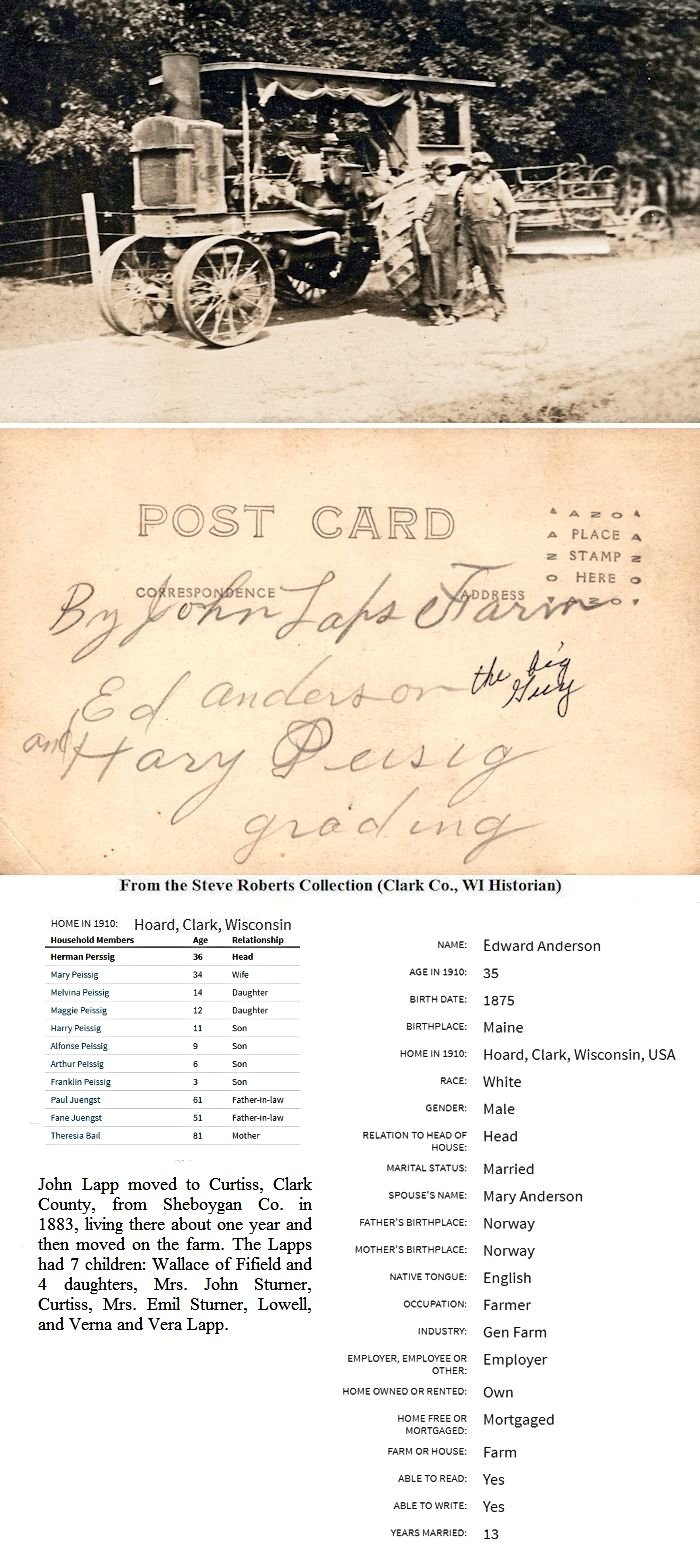 POST CARD
AZO
PLACE
STAMP
HERE
AZO
CORRESPONDENCE
ADDRESS
By John Laps Farm
Ed anderson the big Guy
and Hary Peisig
grading
From the Steve Roberts Collection (Clark Co., WI Historian)
HOME IN 1910: Hoard, Clark, Wisconsin
Household Members Age Relationship
Herman Perssig 36 Head
Mary Peissig 34 Wife
Melvina Peissig 14 Daughter
Maggie Peissig 12 Daughter
Harry Peissig 11 Son
Alfonse Peissig 9 Son
Arthur Peissig 6 Son
Franklin Peissig 3 Son
Paul Juengst 61 Father-in-law
Fane Juengst 51 Father-in-law
Theresia Bail 81 Mother
John Lapp moved to Curtiss, Clark
County, from Sheboygan Co. in
1883, living there about one year and
then moved on the farm. The Lapps
had 7 children: Wallace of Fifield and
4 daughters, Mrs. John Sturner,
Curtiss, Mrs. Emil Sturner, Lowell,
and Verna and Vera Lapp.
NAME: Edward Anderson
AGE IN 1910: 35
BIRTH DATE: 1875
BIRTHPLACE: Maine
HOME IN 1910: Hoard, Clark, Wisconsin, USA
RACE: White
GENDER: Male
RELATION TO HEAD OF HOUSE: Head
MARITAL STATUS: Married
SPOUSE'S NAME: Mary Anderson
FATHER'S BIRTHPLACE: Norway
MOTHER'S BIRTHPLACE: Norway
NATIVE TONGUE: English
OCCUPATION: Farmer
INDUSTRY: Gen Farm
EMPLOYER, EMPLOYEE OR OTHER: Employer
HOME OWNED OR RENTED: Own
HOME FREE OR MORTGAGED: Mortgaged
FARM OR HOUSE: Farm
ABLE TO READ: Yes
ABLE TO WRITE: Yes
YEARS MARRIED: 13